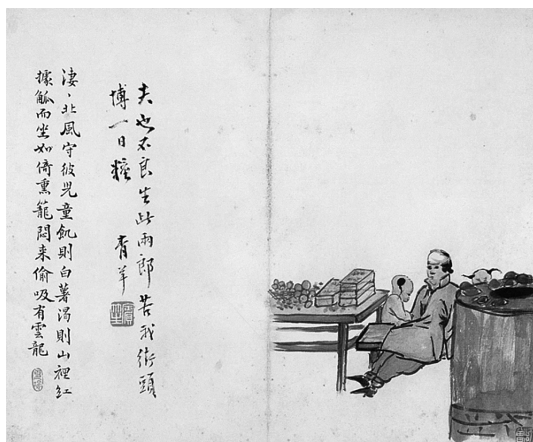 夫也不良生此兩郎苦我街頭
博一日糧 青羊
淒〻北風守彼児童飢則白薯渴則山裡紅
據觚而坐如倚熏籠悶来偷吸有雲龍